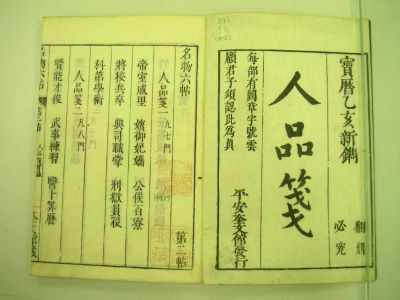 寶曆乙亥新鐫
翻刻
必究
人品箋
每部有圖章字號雲
顧君子須認此為真
平安奎文館發行
名物六帖
第二帖
人品箋一 九七門
帝室戚里 嬪御妃嬙 公侯百寮
將校兵卒 典司職掌 刑獄員役
科第學術
人品箋二 凡八門
賢能才俊 武事練習 醫卜算曆
名物六帖